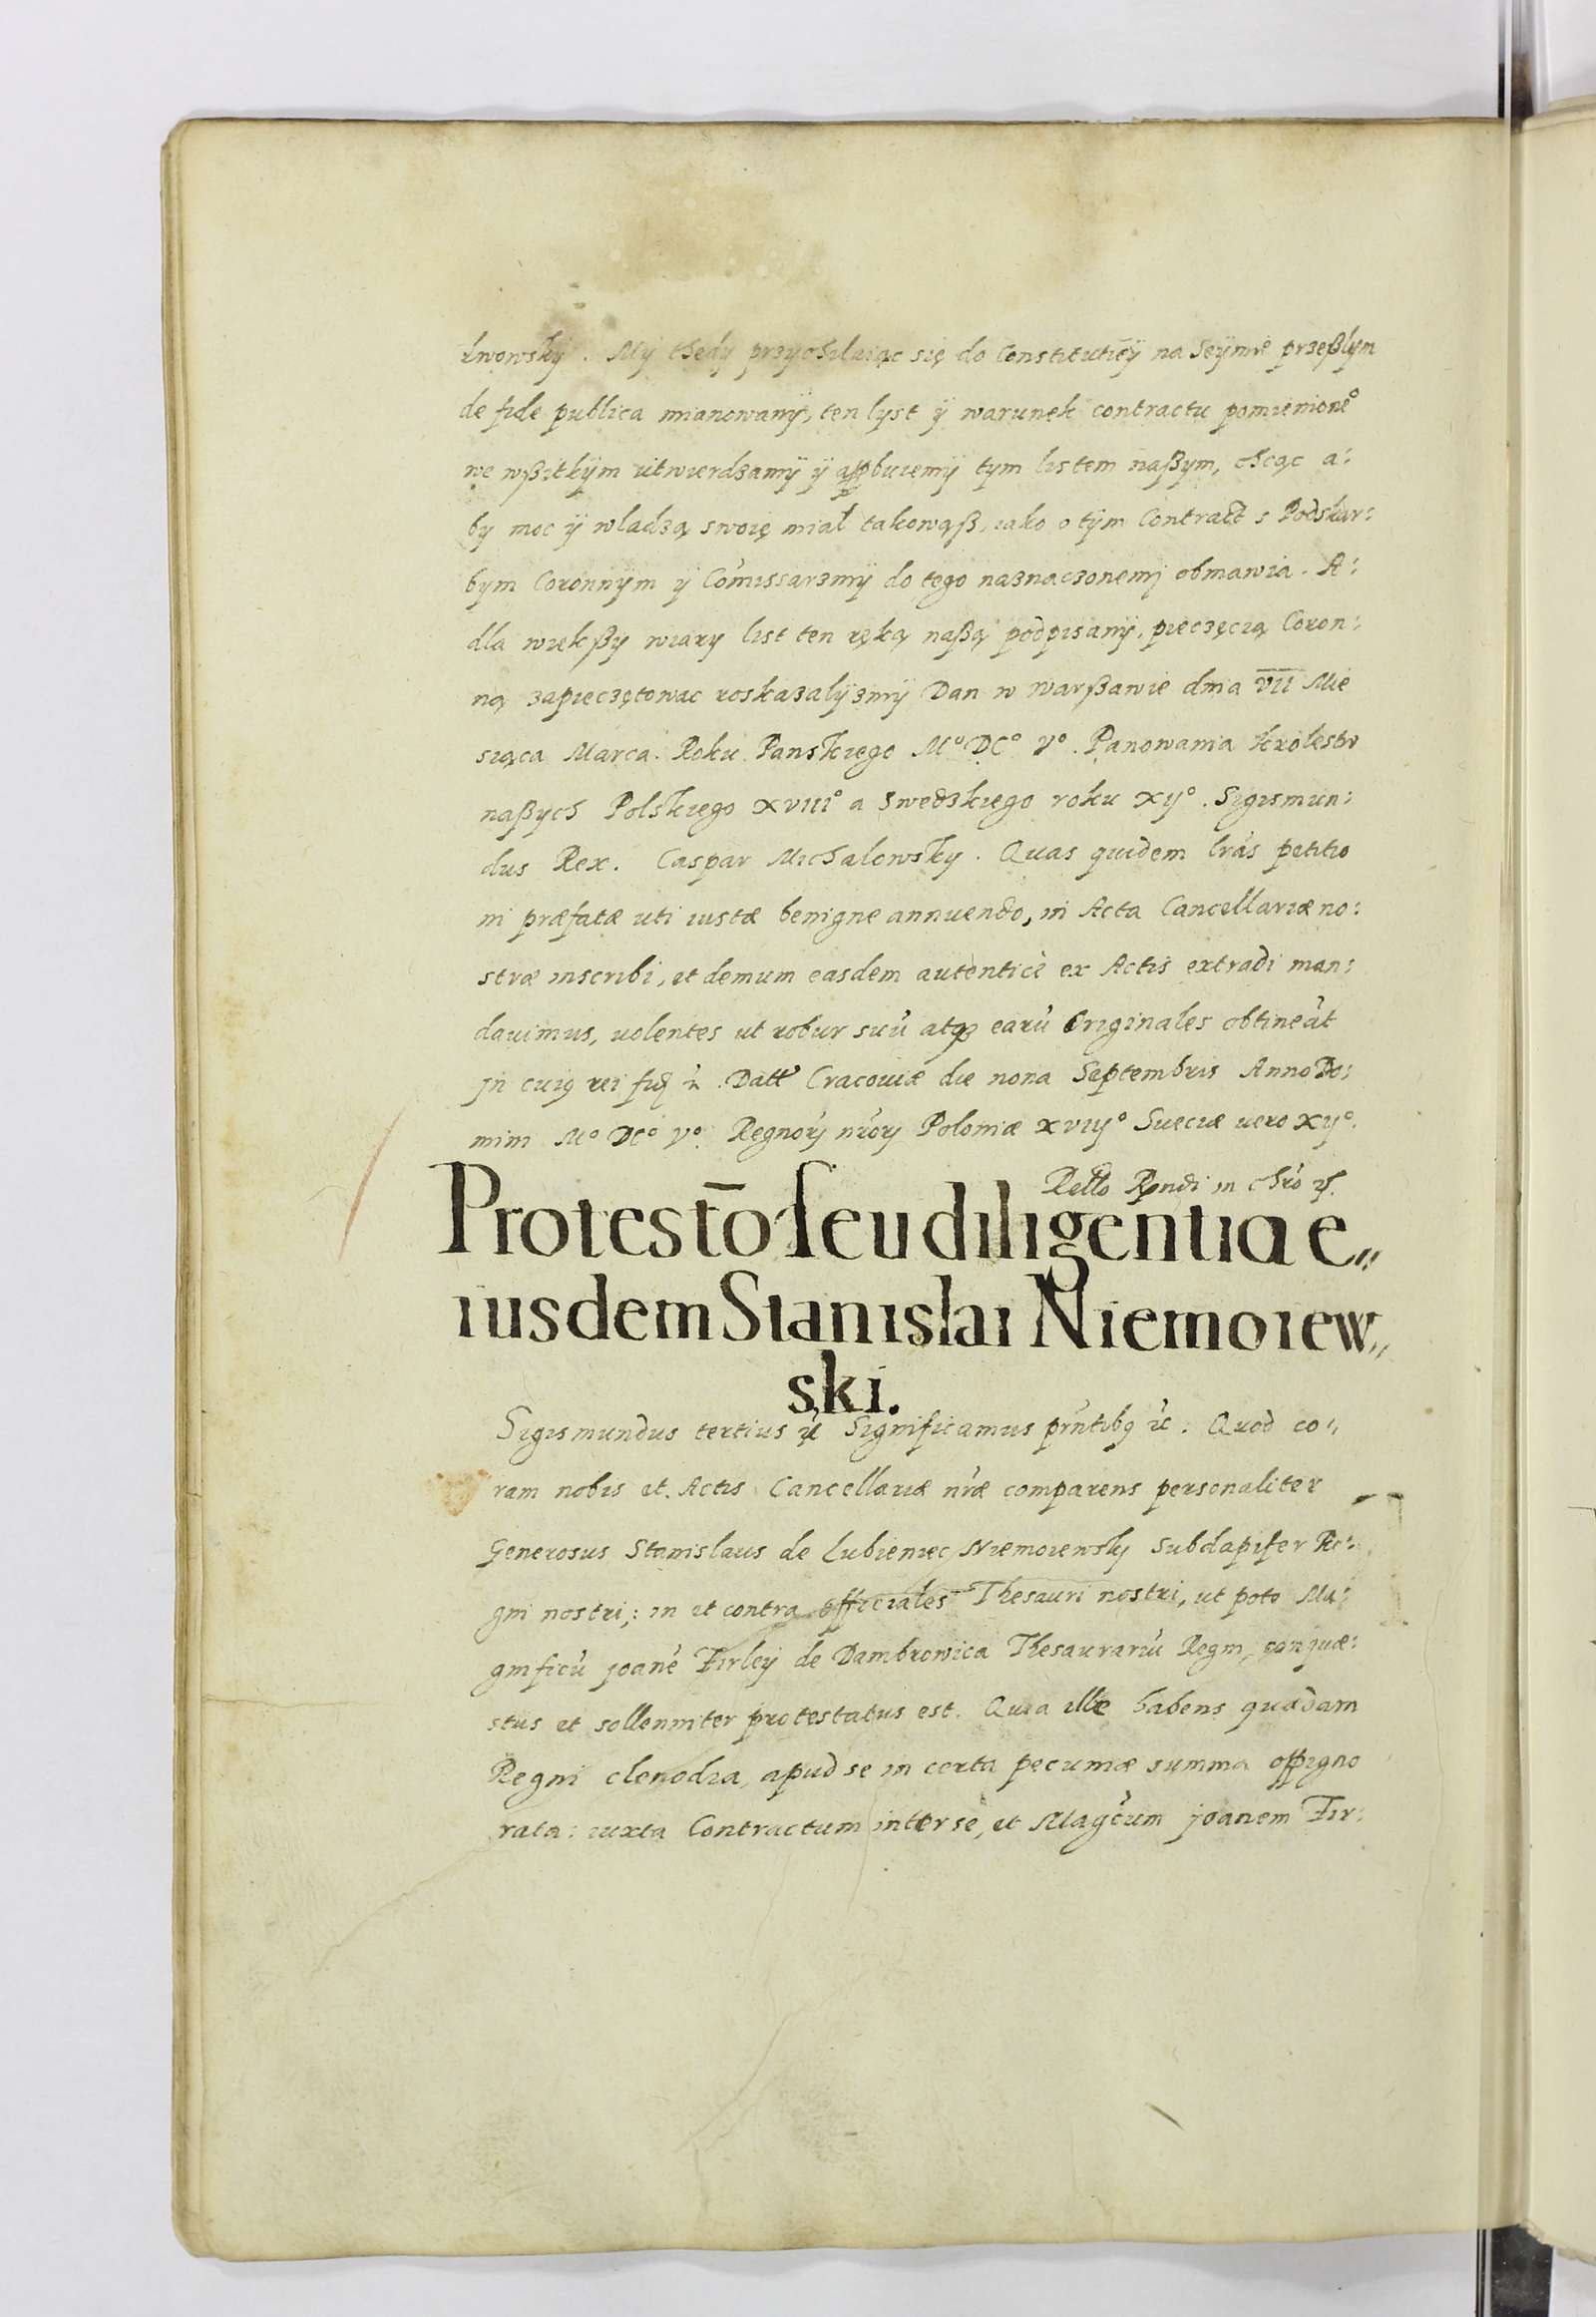 Lwowskÿ. Mÿ thedy przychilaiąc się do Constitutieÿ na Seÿmie przeßlym
de fide publica mianowanÿ, ten lyst ÿ warunek contractu pomienione°
we wßitkÿm utwierdzamÿ ÿ approbuiemÿ tym listem naßym, chcąc a:
by moc ÿ wladzą swoię miał takowąß, iako o tÿm Contract s Podskar:
bym Coronnÿm ÿ Com̃issarzmÿ do tego naznaczonemj obmawia. A:
dla wiekßy wiary list ten ręką naßą podpisanÿ, pieczęcią Coron:
ną zapieczętowac roskazalÿzmÿ Dan w Warßawie dnia VII Mie
siąca Marca. Roku Panskiego M° DC° V°. Panowania krolestw
naßych Polskiego XVIII° a Swedzkiego roku XIJ°. Sigismun:
dus Rex. Caspar Michalowsky. Quas quidem lr̃as petitio
ni præfatæ uti iustæ benigne annuendo, in Acta Cancellariæ no:
stræ inscribi, et demum easdem autenticè ex Actis extradi man:
davimus, volentes ut robur suũ atqꝫ earũ Originales obtineãt
Jn cuiꝰ rei fidẽ &. Datt Cracoviæ die nona Septembris Anno Do:
mini M° DC° V°. Regnorꝝ nr̃orꝝ Poloniæ XVIIJ° Sueciæ vero XIJ°.
Rello Rendi in Chr̃o
Protesto̅ seu diligentia e„
iusdem Stanislai Niemoiew„
ski.
Sigismundus tertius &c Significamus pr̃ntibꝰ &c. Quod co„
ram nobis et Actis Cancellariæ nr̃æ comparens personaliter
Generosus Stanislaus de Lubieniec Niemoiewsky Subdapifer Re:
gni nostri,: in et contra officiales Thesauri nostri, ut poto Ma:
gnificũ Joanẽ Firleÿ de Dambrowica Thesaurariũ Regni, conquæ:
stus et sollenniter protestatus est. Quia ille habens quædam
Regni clenodia, apud se in certa pecuniæ summa oppigno
rata: iuxta Contractum inter se, et Mag̃cum Joanem Fir: